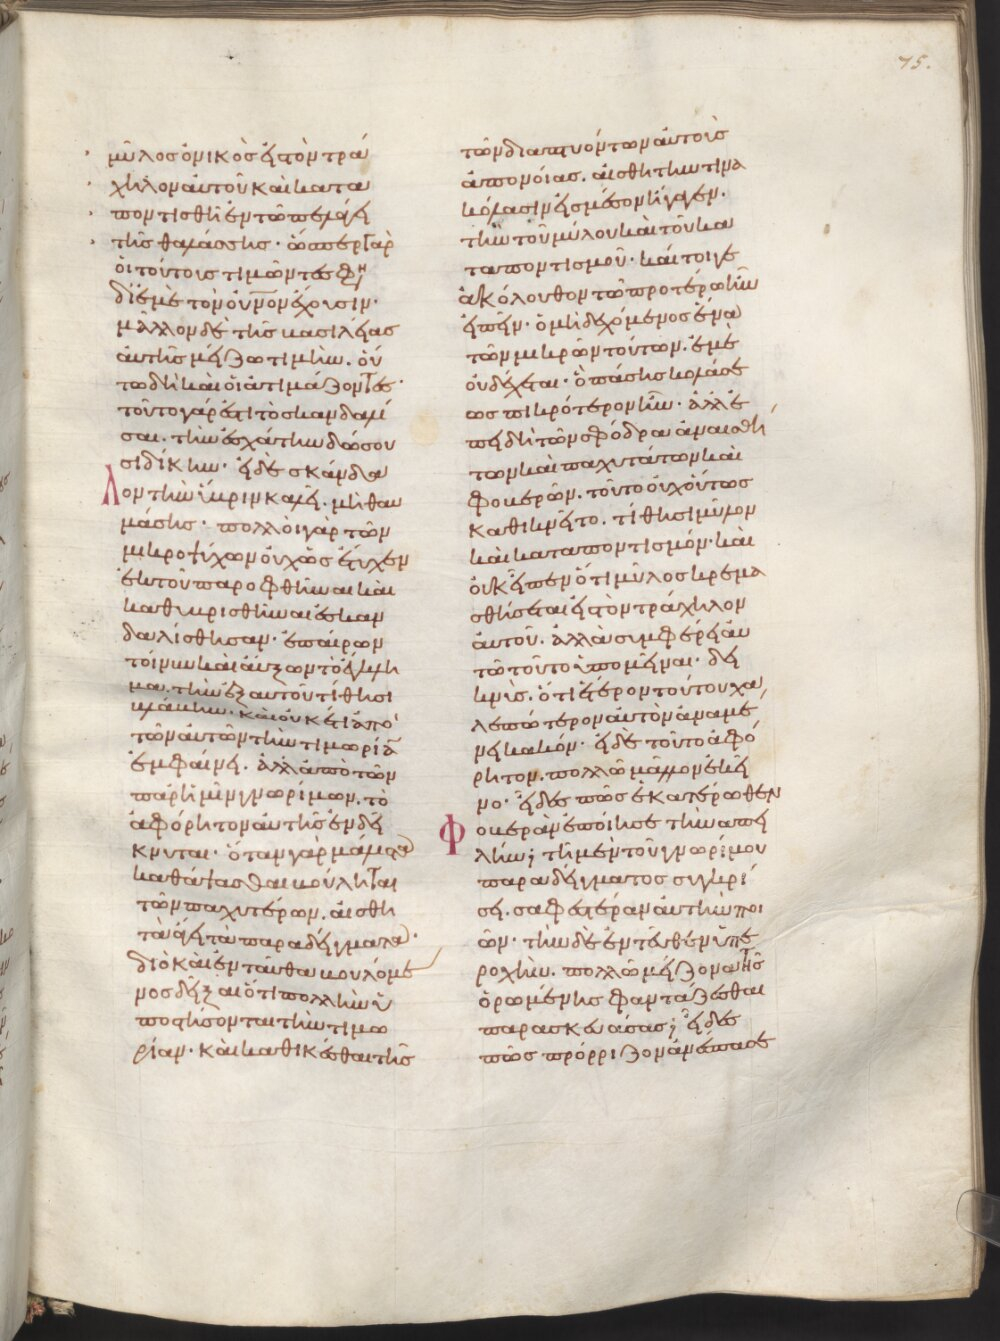 μῦλος ὀνικὸς εἰς τὸν τρά
χηλον αὐτοῦ καὶ κατα
ποντισθῆ ἐν τῶ πελάγει
τῆς θαλάσσης· ὥσπερ γὰρ
οἱ τούτους τιμῶντες φη
δι' ἐμὲ τὸν οὐνον ἔχουσιν·
μᾶλλον δὲ τῆς βασιλείας
αὐτῆς μείζω τιμὴν. οὕ
τω δὴ καὶ οἱ ἀτιμάζοντες·
τοῦτο γάρ ἐστι τὸ σκανδαλί
σαι. τὴν ἐσχάτην δώσου
σι δίκην· εἰ δὲ σκάνδα
λον τὴν ὕβριν καλεῖ. μὴ θαυ
μάσης· πολλοὶ γὰρ τῶν
μικροψύχων οὐχ ὡς ἔτυχεν
ἐκ τοῦ παροφθῆναι καὶ
καθυβρισθῆναι ἐσκαν
δαλίσθησαν· ἐπαίρων
τοίνυν καὶ αὔξων τὸ ἔγκλη
μα. τὴν ἐξ αὐτοῦ τίθησι
βλάβην. καὶ οὐκέτι ἀπὸ
τῶν αὐτῶν τὴν τιμωρίαν
ἐμφαίνει. ἀλλ' ἀπὸ τῶν
παρ' ἡμῖν γνωρίμων. τὸ
ἀφόρητον αὐτῆς ἐνδεί
κνυται· ὅταν γὰρ μάλιστα
καθάψασθαι βούληται
τῶν παχυτέρων. αἰσθη
τὰ ἄγει τὰ παραδείγματα·
διὸ καὶ ἐνταῦθα βουλόμε
νος δεῖξαι ὅτι πολλὴν ὑ
ποστήσονται τὴν τιμω
ρίαν· καὶ καθικέσθαι τῆς
τῶν διαπτυόντων αὐτοὺς
ἀπονοίας. αἰσθητήν τινα
κόλασιν εἰς μέσον ἤγαγεν·
τὴν τοῦ μύλου καὶ τοῦ κα
ταποντισμοῦ· καί τοιγε
ἀκόλουθον τῶ προτέρω ἦν
εἰπεῖν· ὁ μὴ δεχόμενος ἕνα
τῶν μικρῶν τούτων. ἐμὲ
οὐ δέχεται· ὃ πάσης κολάσε
ως πικρότερον ἦν· ἀλλ' ἐ
πειδὴ τῶν σφόδρα ἀναισθή
των καὶ παχυτάτων καὶ
φοβερῶν. τοῦτο οὐχ οὕτως
καθικνεῖτο. τίθησι μῦλον
καὶ καταποντισμόν· καὶ
οὐκ εἶπεν ὅτι μῦλος κρεμα
σθήσεται εἰς τὸν τράχηλον
αὐτοῦ. ἀλλὰ συμφέρει αὐ
τῶ τοῦτο ὑπομεῖναι· δει
κνὺς. ὅτι ἕτερον τούτου χα
λεπώτερον αὐτὸν ἀναμέ
νει κακόν· εἰ δὲ τοῦτο ἀφό
ρητον. πολλῶ μᾶλλον ἐκεῖ
νο· εἶδες πῶς ἑκατέρωθεν
φοβερὰν ἐποίησε τὴν ἀπει
λήν; τῆ μὲν τοῦ γνωρίμου
παραδείγματος συγκρί
σει. σαφεστέραν αὐτὴν ποι
ῶν· τὴν δὲ ἐντεῦθεν ὑπε
ροχὴν. πολλῶ μείζονα τῆς
ὁρωμένης φαντάζεσθαι
παρασκευάσας; εἶδες
πῶς πρόρριζον ἀνέσπασε
75.